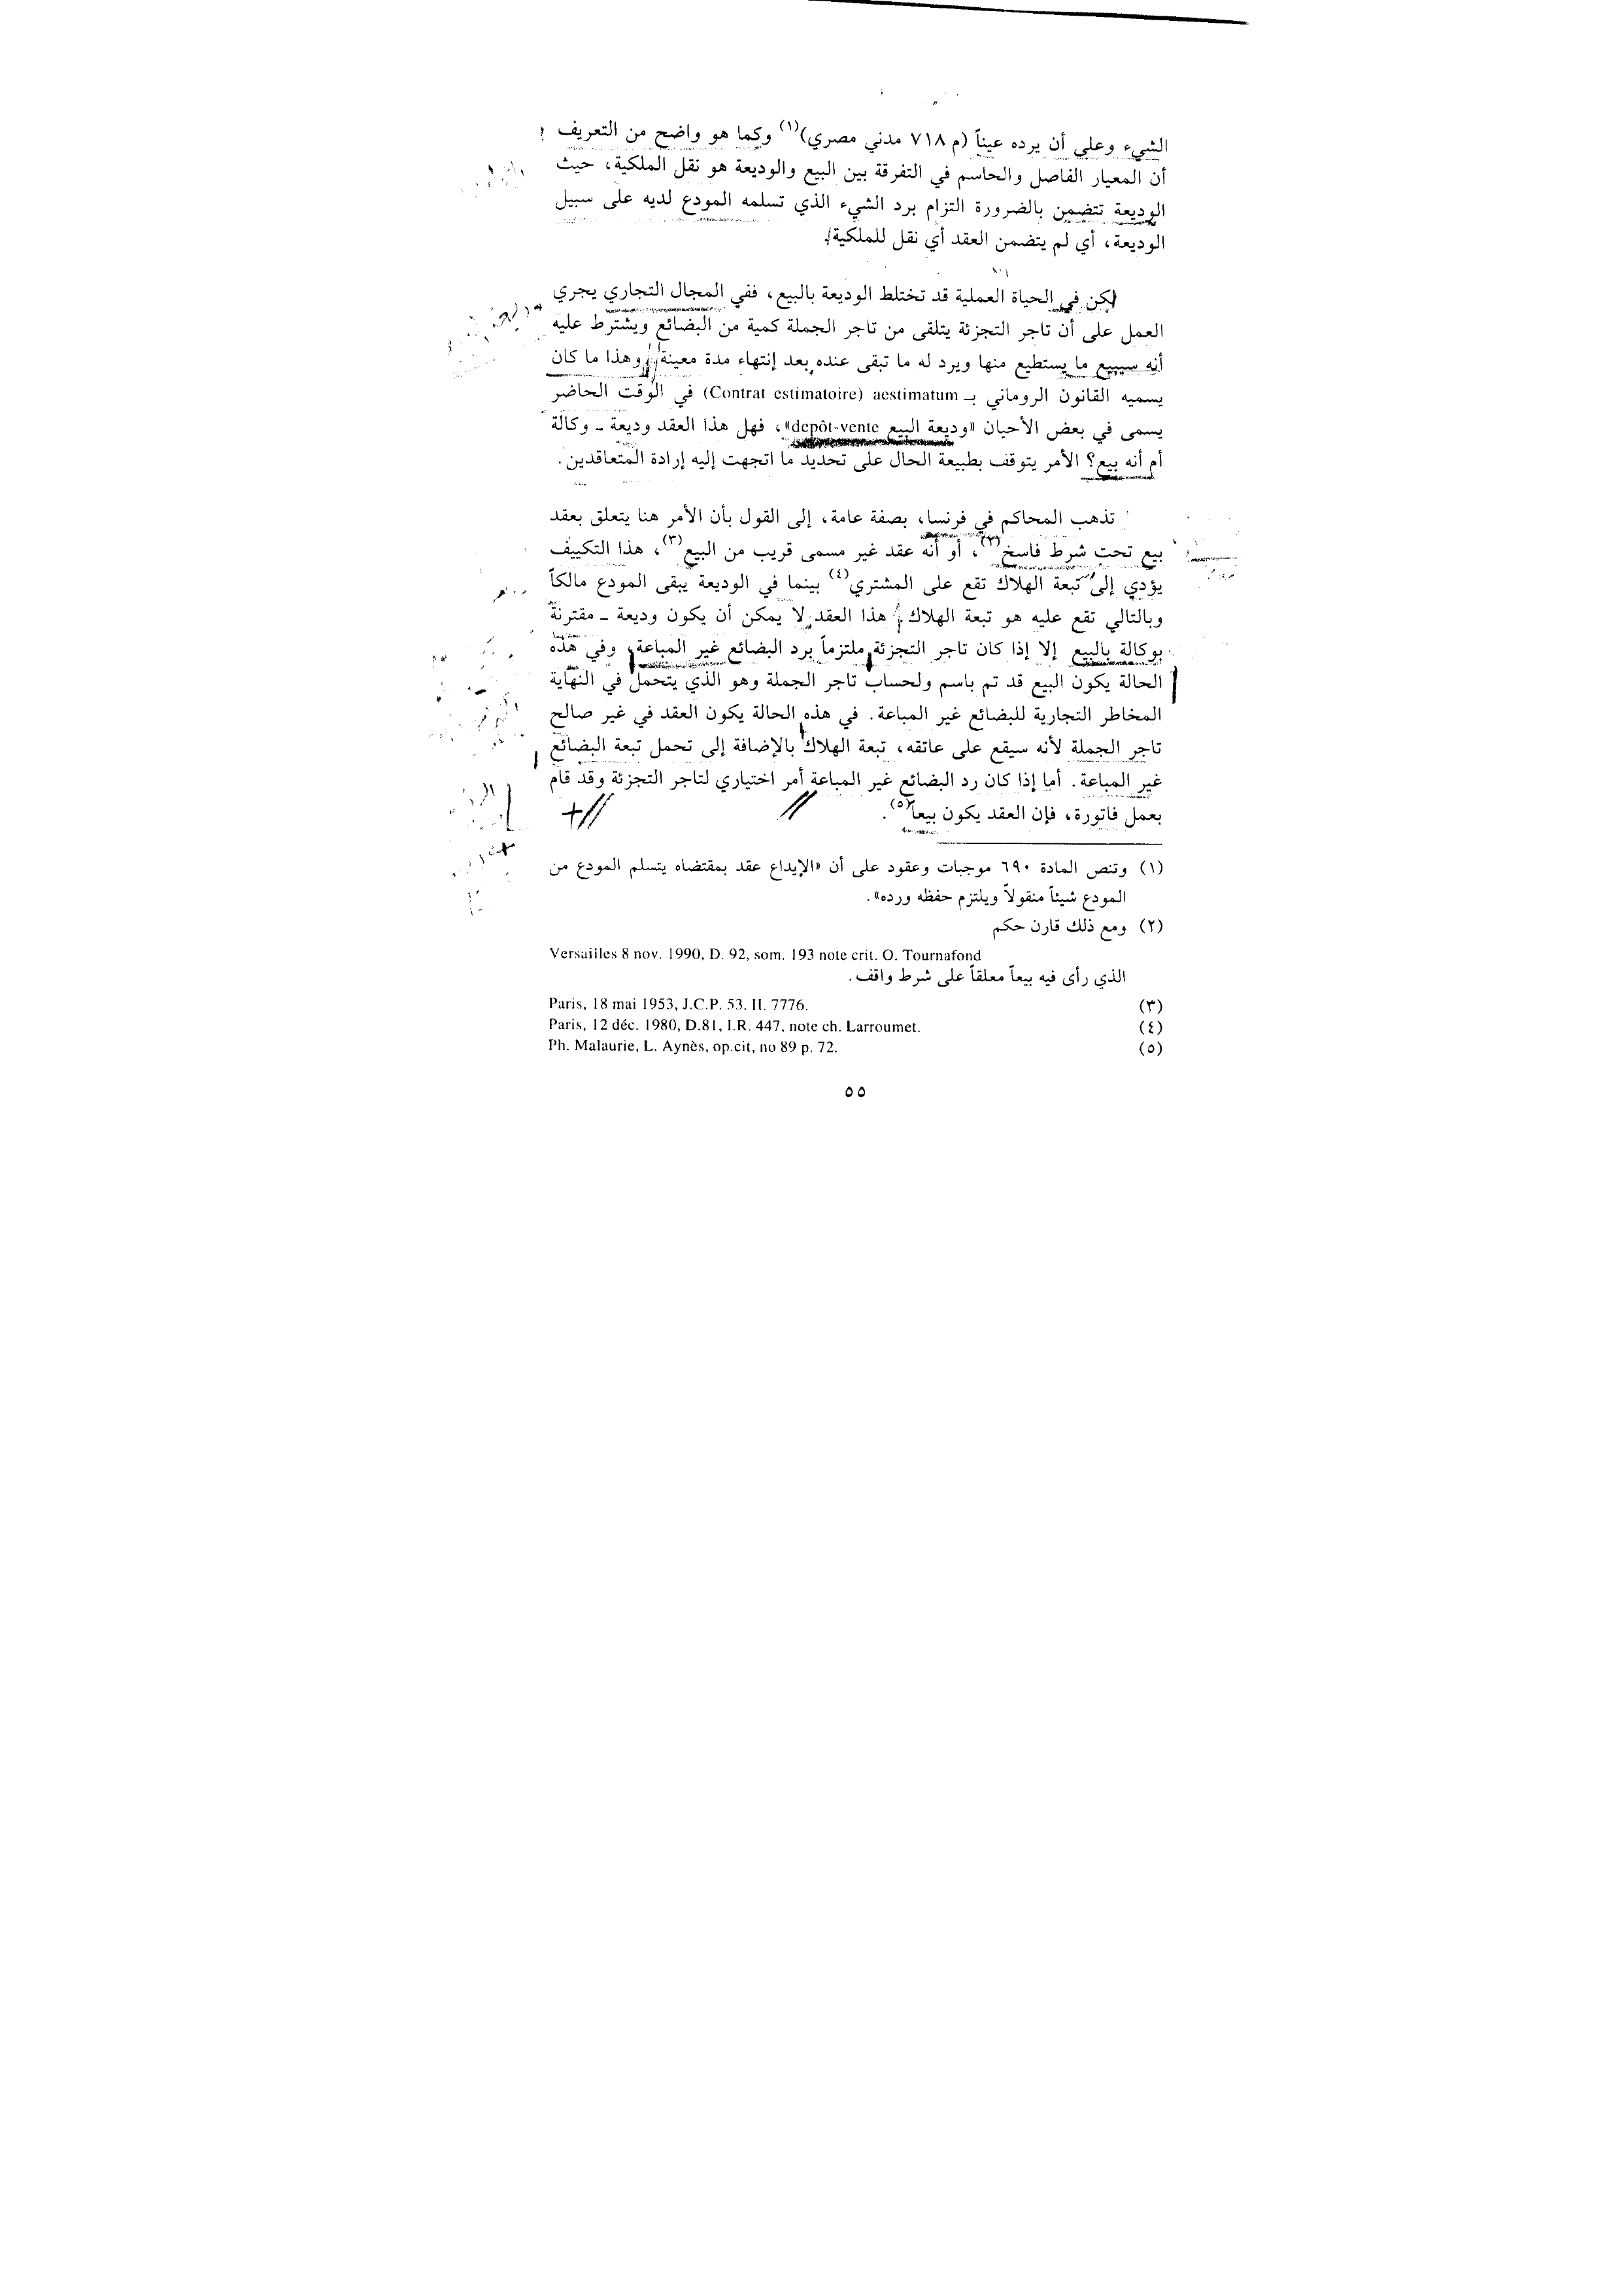 الشيء وعلى أن يرده عيناً (م ٧١٨ مدني مصري)(١) وكما هو واضح من التعريف
أن المعيار الفاصل والحاسم في التفرقة بين البيع والوديعة هو نقل الملكية، حيث
الوديعة تتضمن بالضرورة التزام برد الشيء الذي تسلمه المودع لديه على سبيل
الوديعة، أي لم يتضمن العقد أي نقل للملكية.
لكن في الحياة العملية قد تختلط الوديعة بالبيع، ففي المجال التجاري يجري
العمل على أن تاجر التجزئة يتلقى من تاجر الجملة كمية من البضائع ويشترط عليه
أنه سيبيع ما يستطيع منها ويرد له ما تبقى عنده بعد إنتهاء مدة معينة، وهذا ما كان
يسميه القانون الروماني بـ aestimatum (Contrat estimatoire) في الوقت الحاضر
يسمى في بعض الأحيان «وديعة البيع depôt-vente»، فهل هذا العقد وديعة ـ وكالة
أم أنه بيع؟ الأمر يتوقف بطبيعة الحال على تحديد ما اتجهت إليه إرادة المتعاقدين.
تذهب المحاكم في فرنسا، بصفة عامة، إلى القول بأن الأمر هنا يتعلق بعقد
بيع تحت شرط فاسخ(٢)، أو أنه عقد غير مسمى قريب من البيع(٣)، هذا التكييف
يؤدي إلى تبعة الهلاك تقع على المشتري(٤) بينما في الوديعة يبقى المودع مالكاً
وبالتالي تقع عليه هو تبعة الهلاك. هذا العقد لا يمكن أن يكون وديعة ـ مقترنة
بوكالة بالبيع إلا إذا كان تاجر التجزئة ملتزماً برد البضائع غير المباعة، وفي هذه
الحالة يكون البيع قد تم باسم ولحساب تاجر الجملة وهو الذي يتحمل في النهاية
المخاطر التجارية للبضائع غير المباعة. في هذه الحالة يكون العقد في غير صالح
تاجر الجملة لأنه سيقع على عاتقه، تبعة الهلاك بالإضافة إلى تحمل تبعة البضائع
غير المباعة. أما إذا كان رد البضائع غير المباعة أمر اختياري لتاجر التجزئة وقد قام
بعمل فاتورة، فإن العقد يكون بيعاً(٥).
(١) وتنص المادة ٦٩٠ موجبات وعقود على أن «الإيداع عقد بمقتضاه يتسلم المودع من
المودع شيئاً منقولاً ويلتزم حفظه ورده».
(٢) ومع ذلك قارن حكم
Versailles 8 nov. 1990, D. 92, som. 193 note crit. O. Tournafond
الذي رأى فيه بيعاً معلقاً على شرط واقف.
(٣) Paris, 18 mai 1953, J.C.P. 53. II. 7776.
(٤) Paris, 12 déc. 1980, D.81, I.R. 447, note ch. Larroumet.
(٥) Ph. Malaurie, L. Aynès, op.cit, no 89 p. 72.
٥٥